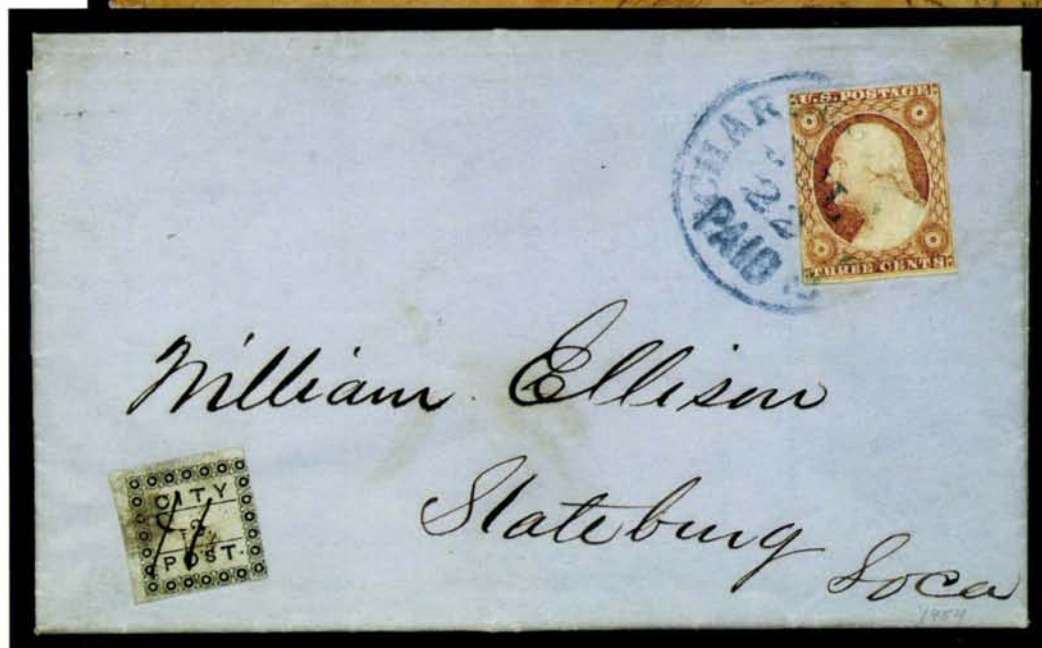 CHAR
22
PAID
U.S. POSTAGE
THREE CENTS
William Ellison
Stateburg
So ca
CITY
POST.
1854